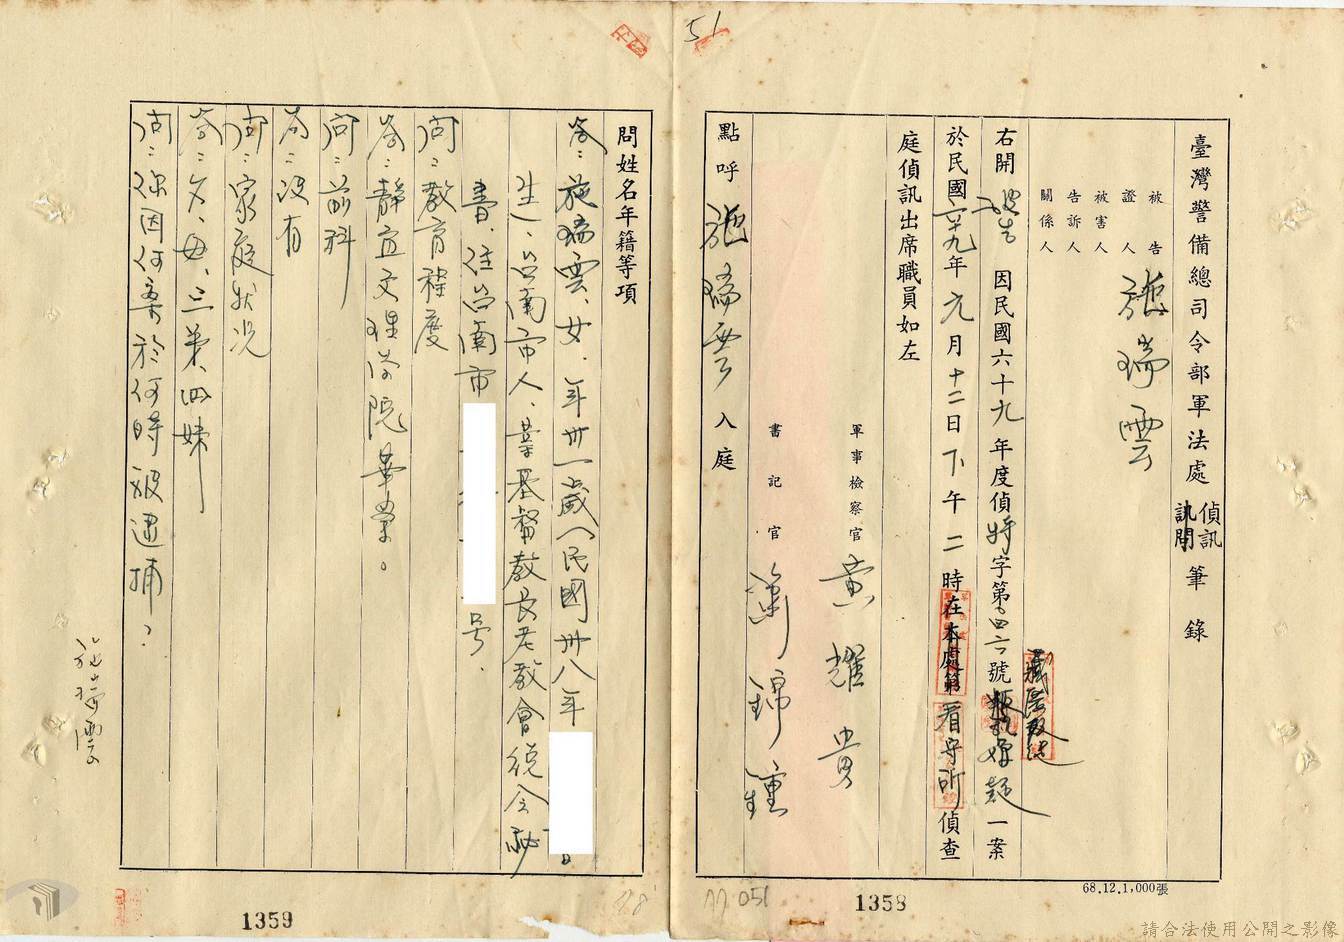 51
臺灣警備總司令部軍法處 偵訊 訊問 筆錄
被告
證人
被害人
告訴人
關係人
施瑞雲
右開被告 因民國六十九年度偵特字第 號 一案
於民國六十九年元月十二日下午二時在本處第看守所偵查
庭偵訊出席職員如左
軍事檢察官 黃耀
書記官 錦鍾
點呼 施瑞雲 入庭
68.12.1,000張
1358
051
問姓名年籍等項
答：施瑞雲、女、年卅一歲（民國卅八年 日
生）、台南市人、業基督教長老教會總會秘
書、住台南市 号、
問：教育程度
答：靜宜文理學院畢業。
問：前科
答：沒有
問：家庭狀況
答：父、母、三弟、四妹
問：你因何案於何時被逮捕？
施瑞雲
1359
請合法使用公開之影像